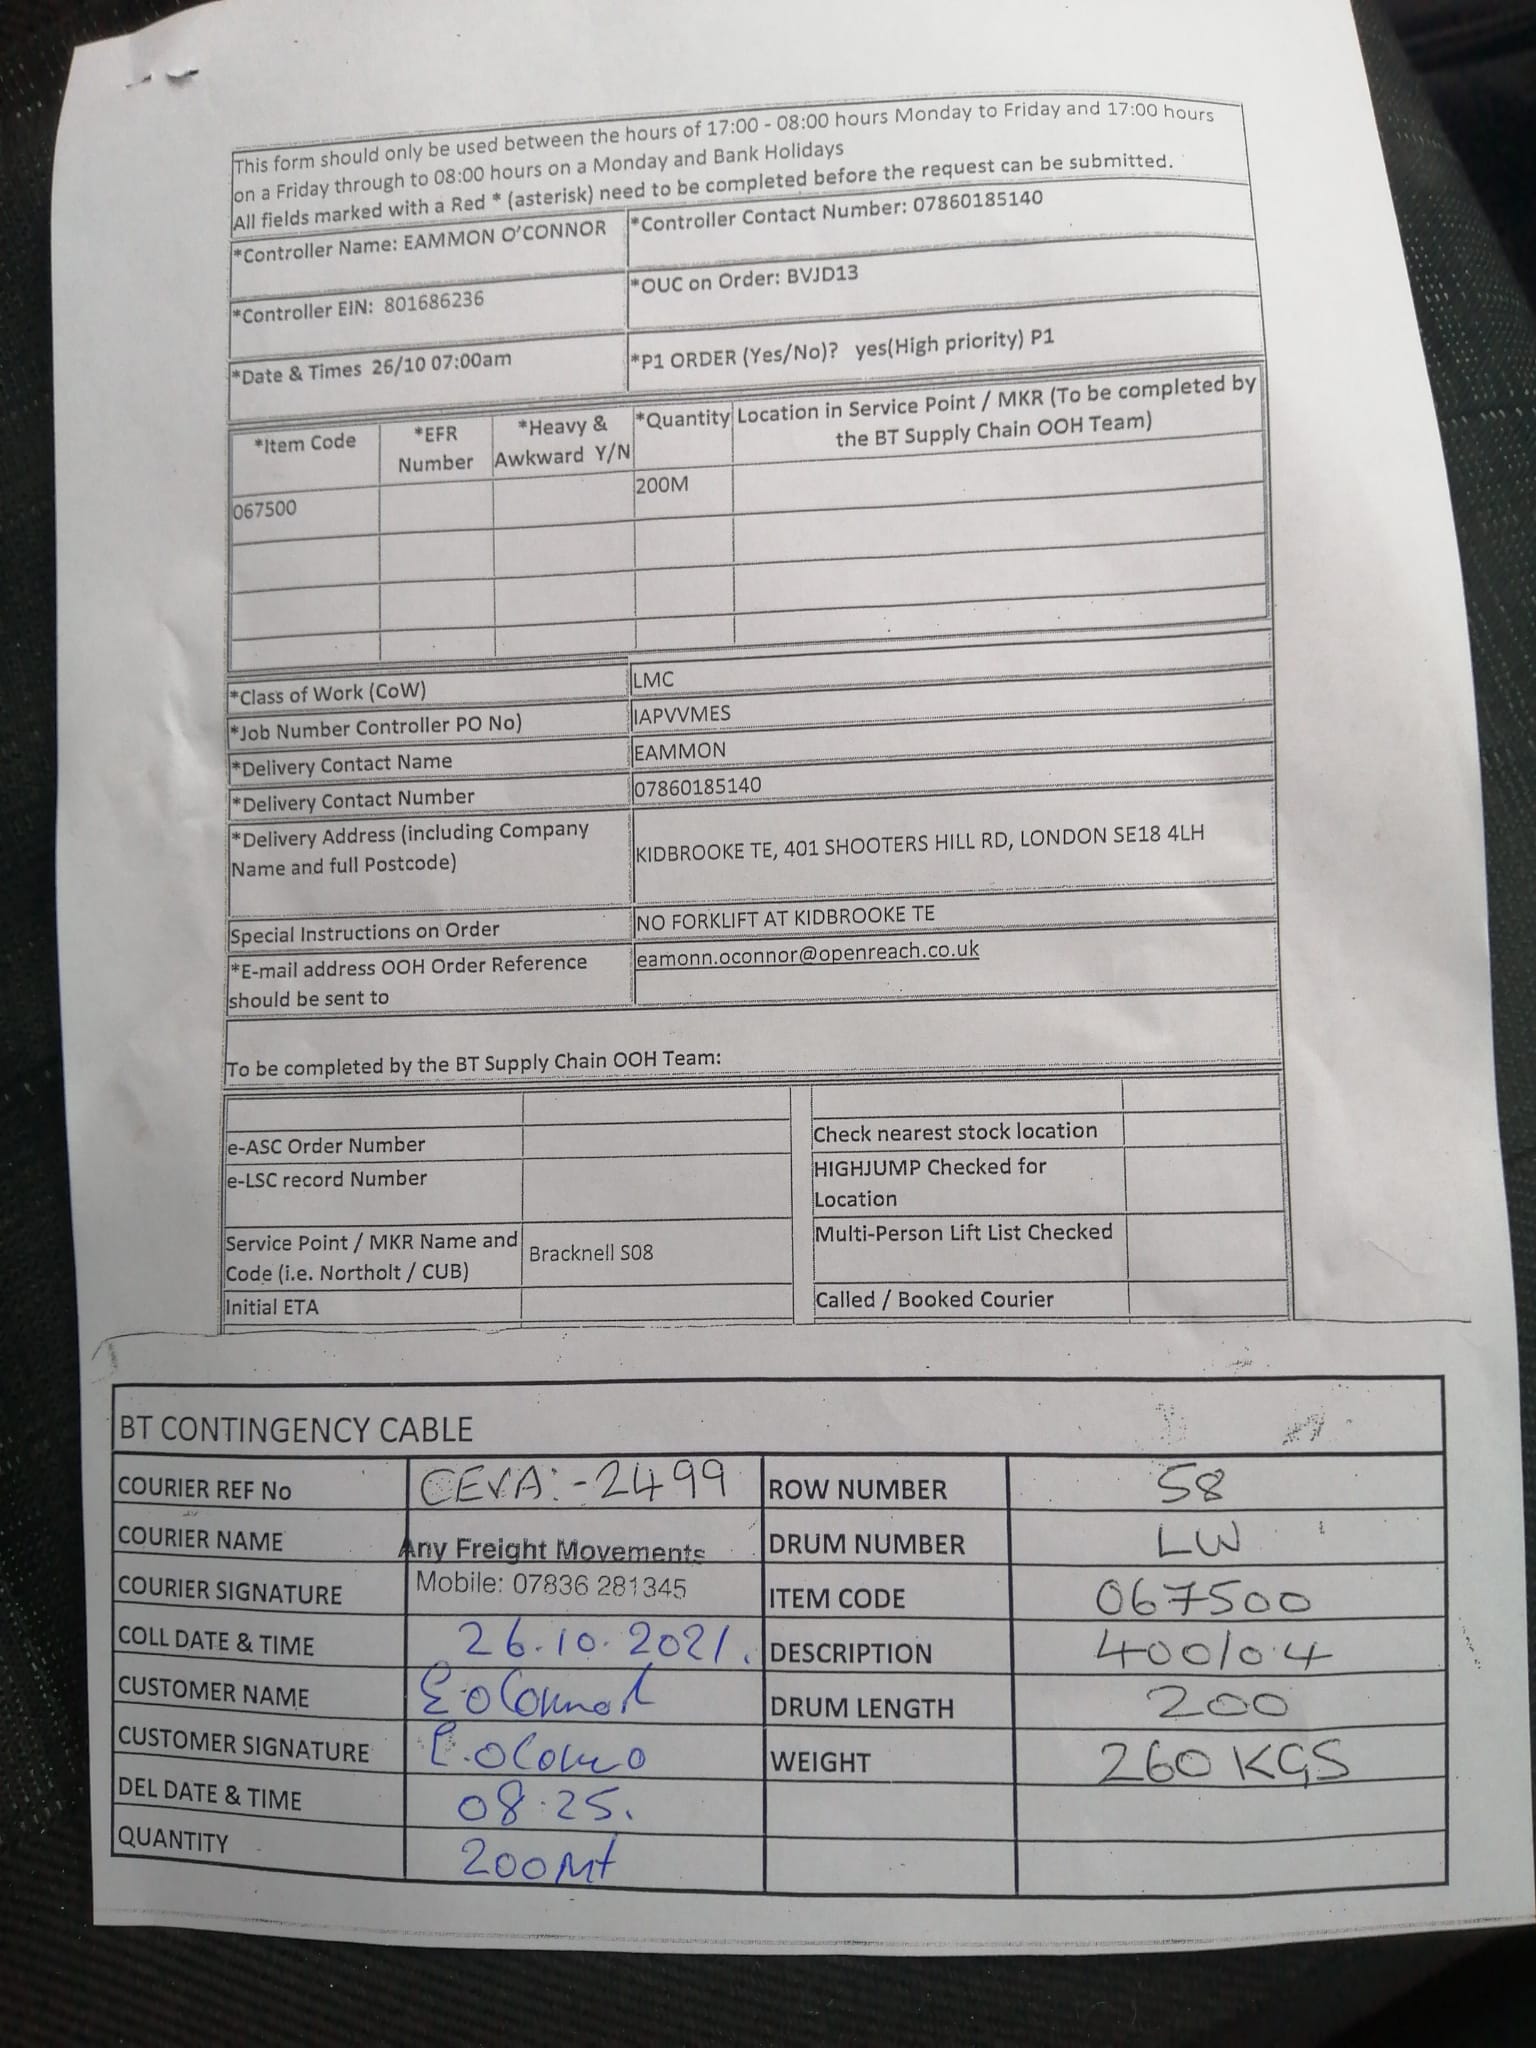 This form should only be used between the hours of 17:00 - 08:00 hours Monday to Friday and 17:00 hours
on a Friday through to 08:00 hours on a Monday and Bank Holidays
All fields marked with a Red * (asterisk) need to be completed before the request can be submitted.
*Controller Name: EAMMON O'CONNOR
*Controller Contact Number: 07860185140
*Controller EIN: 801686236
*OUC on Order: BVJD13
*Date & Times 26/10 07:00am
*P1 ORDER (Yes/No)? yes(High priority) P1
*Item Code
*EFR
Number
*Heavy &
Awkward Y/N
*Quantity
Location in Service Point / MKR (To be completed by
the BT Supply Chain OOH Team)
067500
200M
*Class of Work (CoW)
LMC
*Job Number Controller PO No)
IAPVVMES
*Delivery Contact Name
EAMMON
*Delivery Contact Number
07860185140
*Delivery Address (including Company
Name and full Postcode)
KIDBROOKE TE, 401 SHOOTERS HILL RD, LONDON SE18 4LH
Special Instructions on Order
NO FORKLIFT AT KIDBROOKE TE
*E-mail address OOH Order Reference
should be sent to
eamonn.oconnor@openreach.co.uk
To be completed by the BT Supply Chain OOH Team:
e-ASC Order Number
Check nearest stock location
e-LSC record Number
HIGHJUMP Checked for
Location
Service Point / MKR Name and
Code (i.e. Northolt / CUB)
Bracknell S08
Multi-Person Lift List Checked
Initial ETA
Called / Booked Courier
BT CONTINGENCY CABLE
COURIER REF No
CEVA:-2499
ROW NUMBER
58
COURIER NAME
Any Freight Movements
DRUM NUMBER
LW
COURIER SIGNATURE
Mobile: 07836 281345
ITEM CODE
067500
COLL DATE & TIME
26.10.2021.
DESCRIPTION
400/0.4
CUSTOMER NAME
E oConnor
DRUM LENGTH
200
CUSTOMER SIGNATURE
WEIGHT
260 KGS
DEL DATE & TIME
08.25.
QUANTITY
200Mt